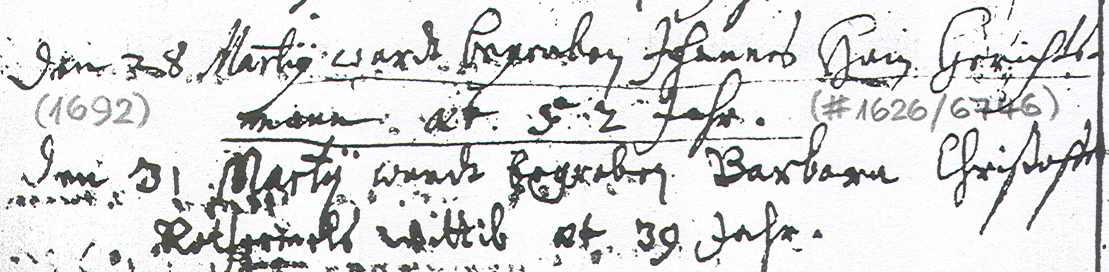 Den 28 Martij wardt begraben Johannes Hain Gerichts-
(1692) mann æt. 52 Jahr. (#1626/6746)
Den 31 Martij wardt begraben Barbara Christoffel
Rothermels wittib æt. 39 Jahr.